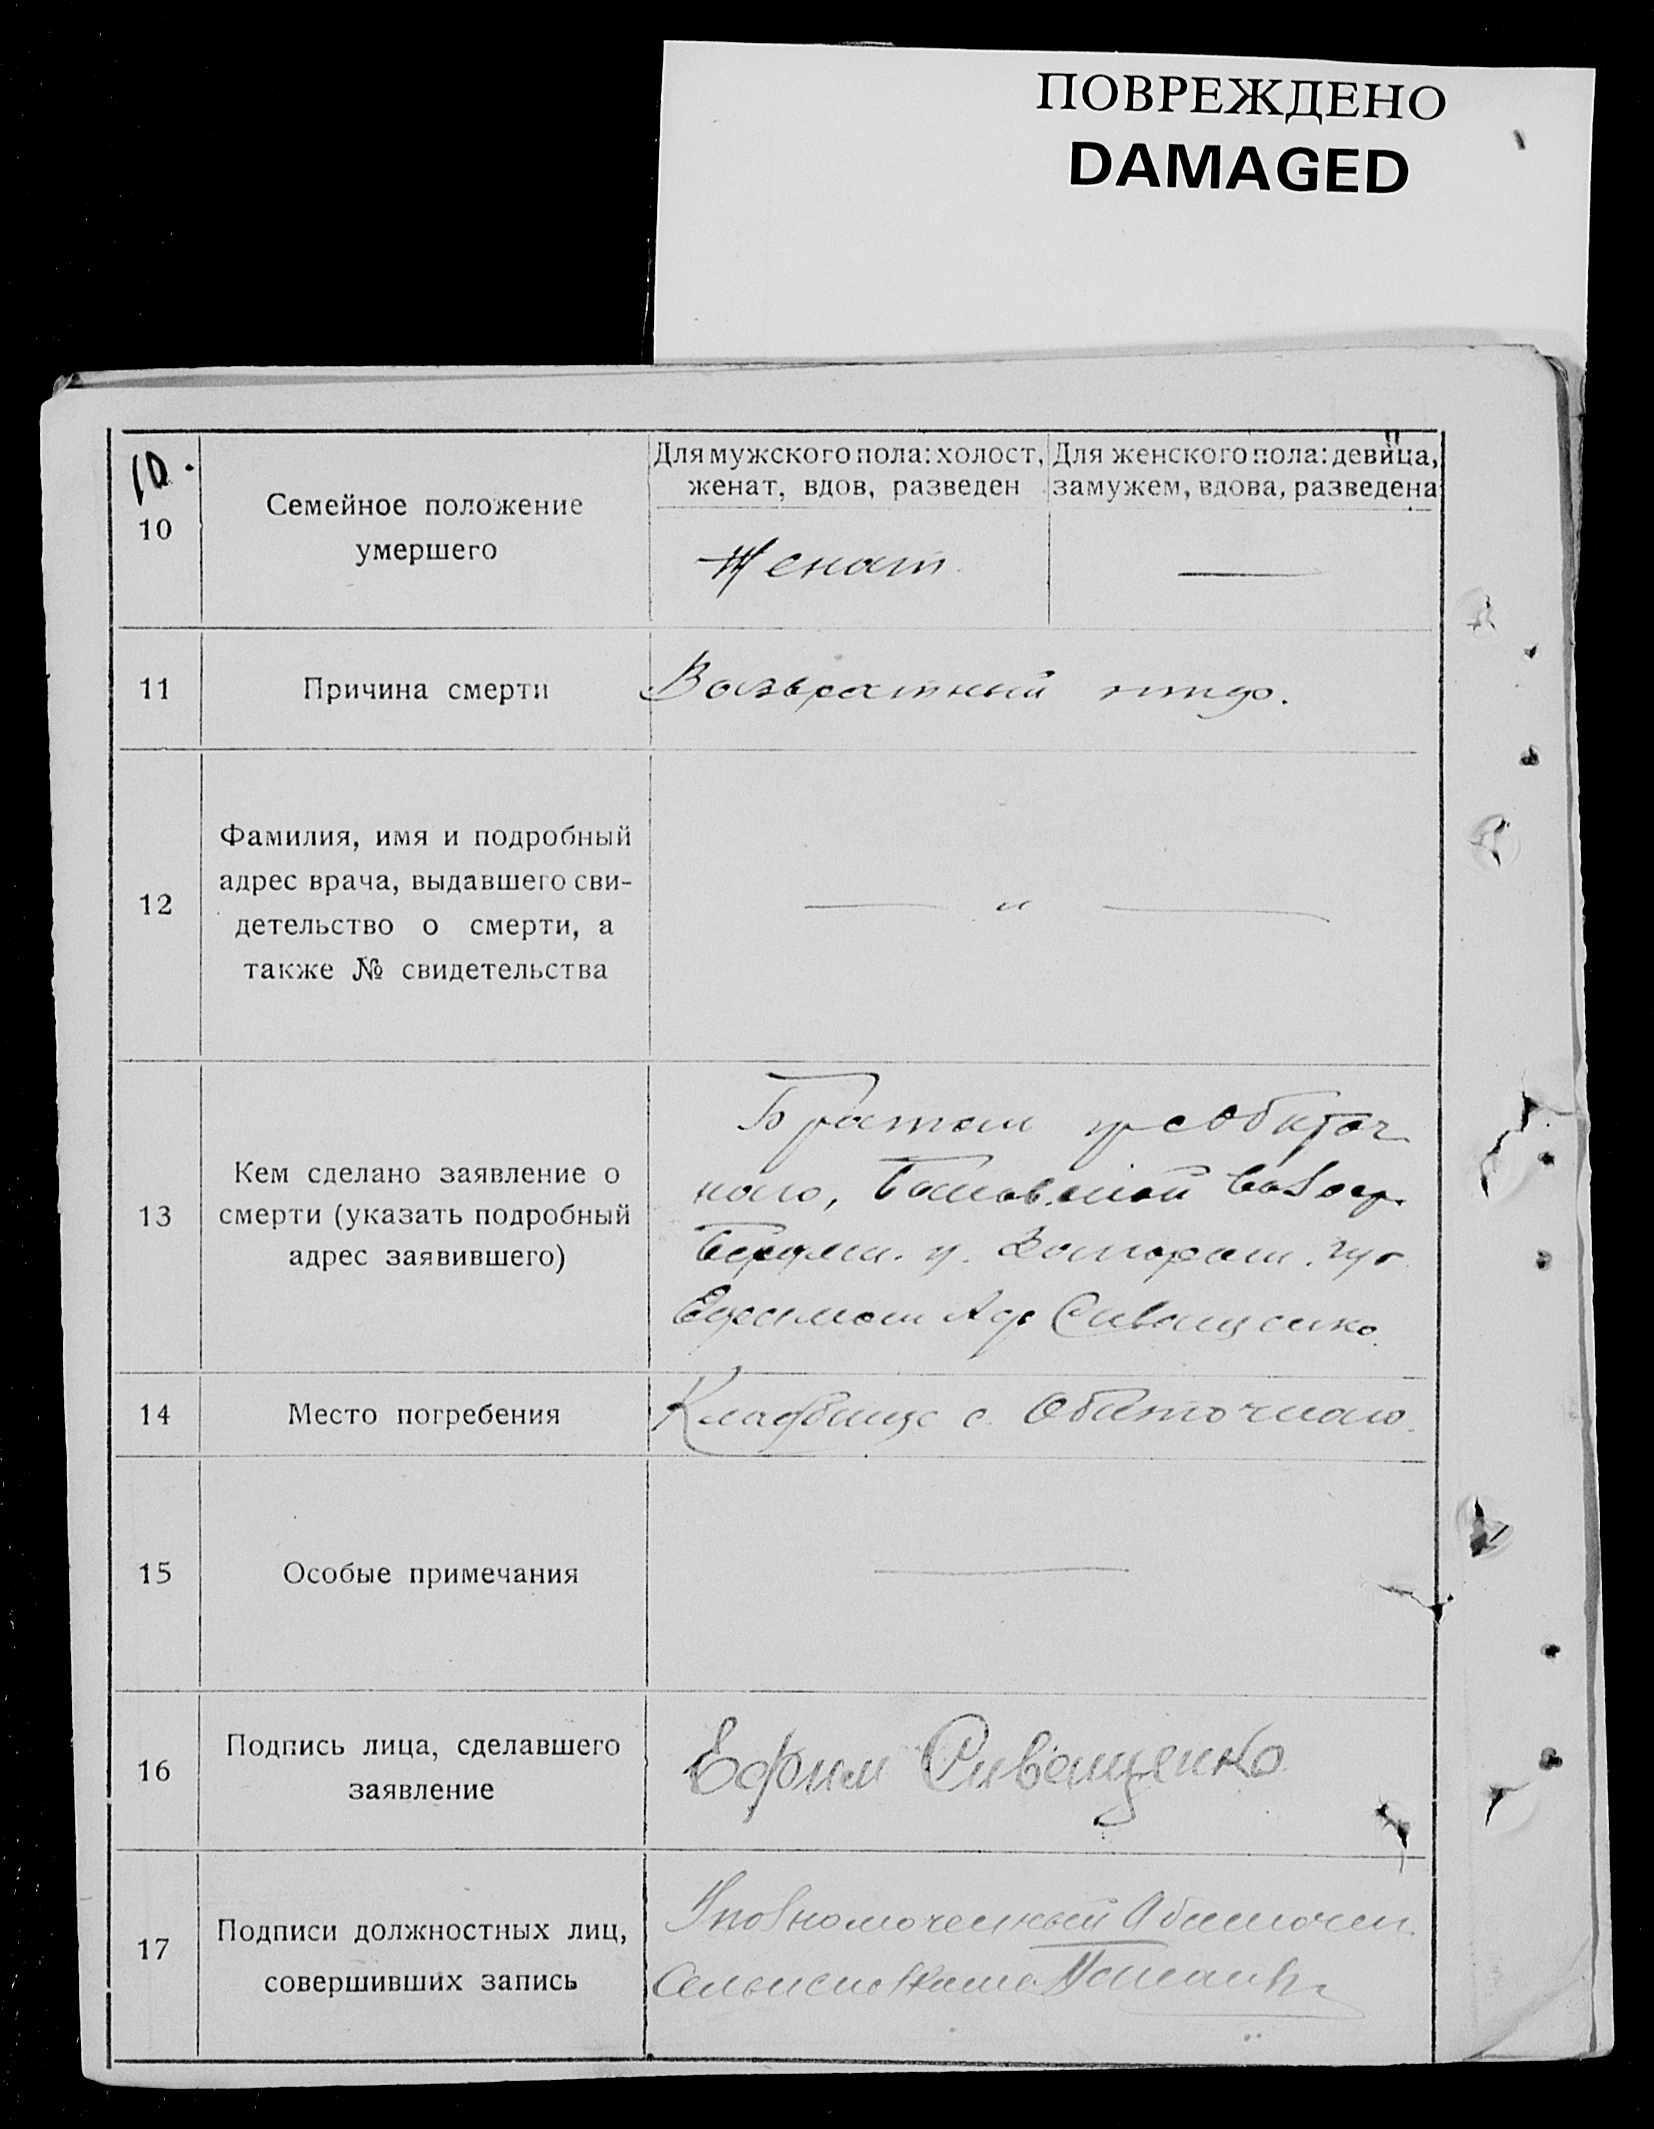 ПОВРЕЖДЕНО
DAMAGED
10.
10
Семейное положение
умершего
Для мужского пола: холост,
женат, вдов, разведен
Для женского пола: девица,
замужем, вдова, разведена
Женат
—
11
Причина смерти
Возвратный тиф.
12
Фамилия, имя и подробный
адрес врача, выдавшего сви-
детельство о смерти, а
также № свидетельства
— „ —
13
Кем сделано заявление о
смерти (указать подробный
адрес заявившего)
Братом гр с Обиточ
ного,
Запорож. губ
Ефимом Сиващенко.
14
Место погребения
Кладбище с. Обиточного.
15
Особые примечания
—
16
Подпись лица, сделавшего
заявление
Ефим Сиващенко
17
Подписи должностных лиц,
совершивших запись
Уполномоченный Обиточен.